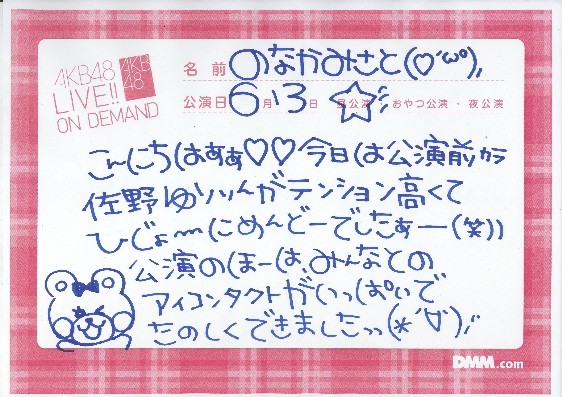 AKB48
LIVE!!
ON DEMAND
AKB
48
名前 のなかみさと(♡´ω`)
公演日 6月3日 昼公演・おやつ公演・夜公演
こんにちはあぁぁ♡♡今日は公演前から
佐野ゆりりんがテンション高くて
ひじょーにめんどーでしたぁー(笑))
公演のほーは、みんなとの
アイコンタクトがいっぱいで
たのしくできましたっっ(*´∀`)!!
DMM.com